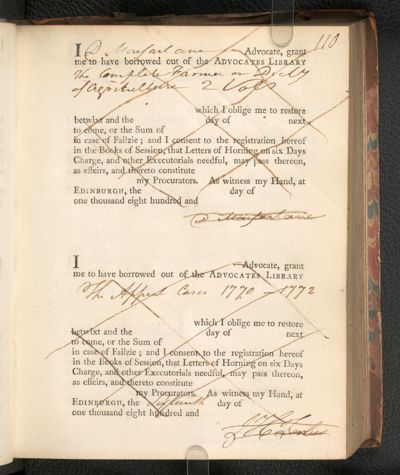 110
I D Macfarlane Advocate, grant
me to have borrowed out of the ADVOCATES LIBRARY
The Complete Farmer or Dicty
of Agriculture 2 Vols
which I oblige me to restore
betwixt and the day of next
to come, or the Sum of
in case of Failzie; and I consent to the registration hereof
in the Books of Session, that Letters of Horning on six Days
Charge, and other Executorials needful, may pass thereon,
as effeirs, and thereto constitute
my Procurators. As witness my Hand, at
EDINBURGH, the day of
one thousand eight hundred and
D Macfarlane
I Advocate, grant
me to have borrowed out of the ADVOCATES LIBRARY
The Appeal Cases 1770 - 1772
which I oblige me to restore
betwixt and the day of next
to come, or the Sum of
in case of Failzie; and I consent to the registration hereof
in the Books of Session, that Letters of Horning on six Days
Charge, and other Executorials needful, may pass thereon,
as effeirs, and thereto constitute
my Procurators. As witness my Hand, at
EDINBURGH, the day of
one thousand eight hundred and